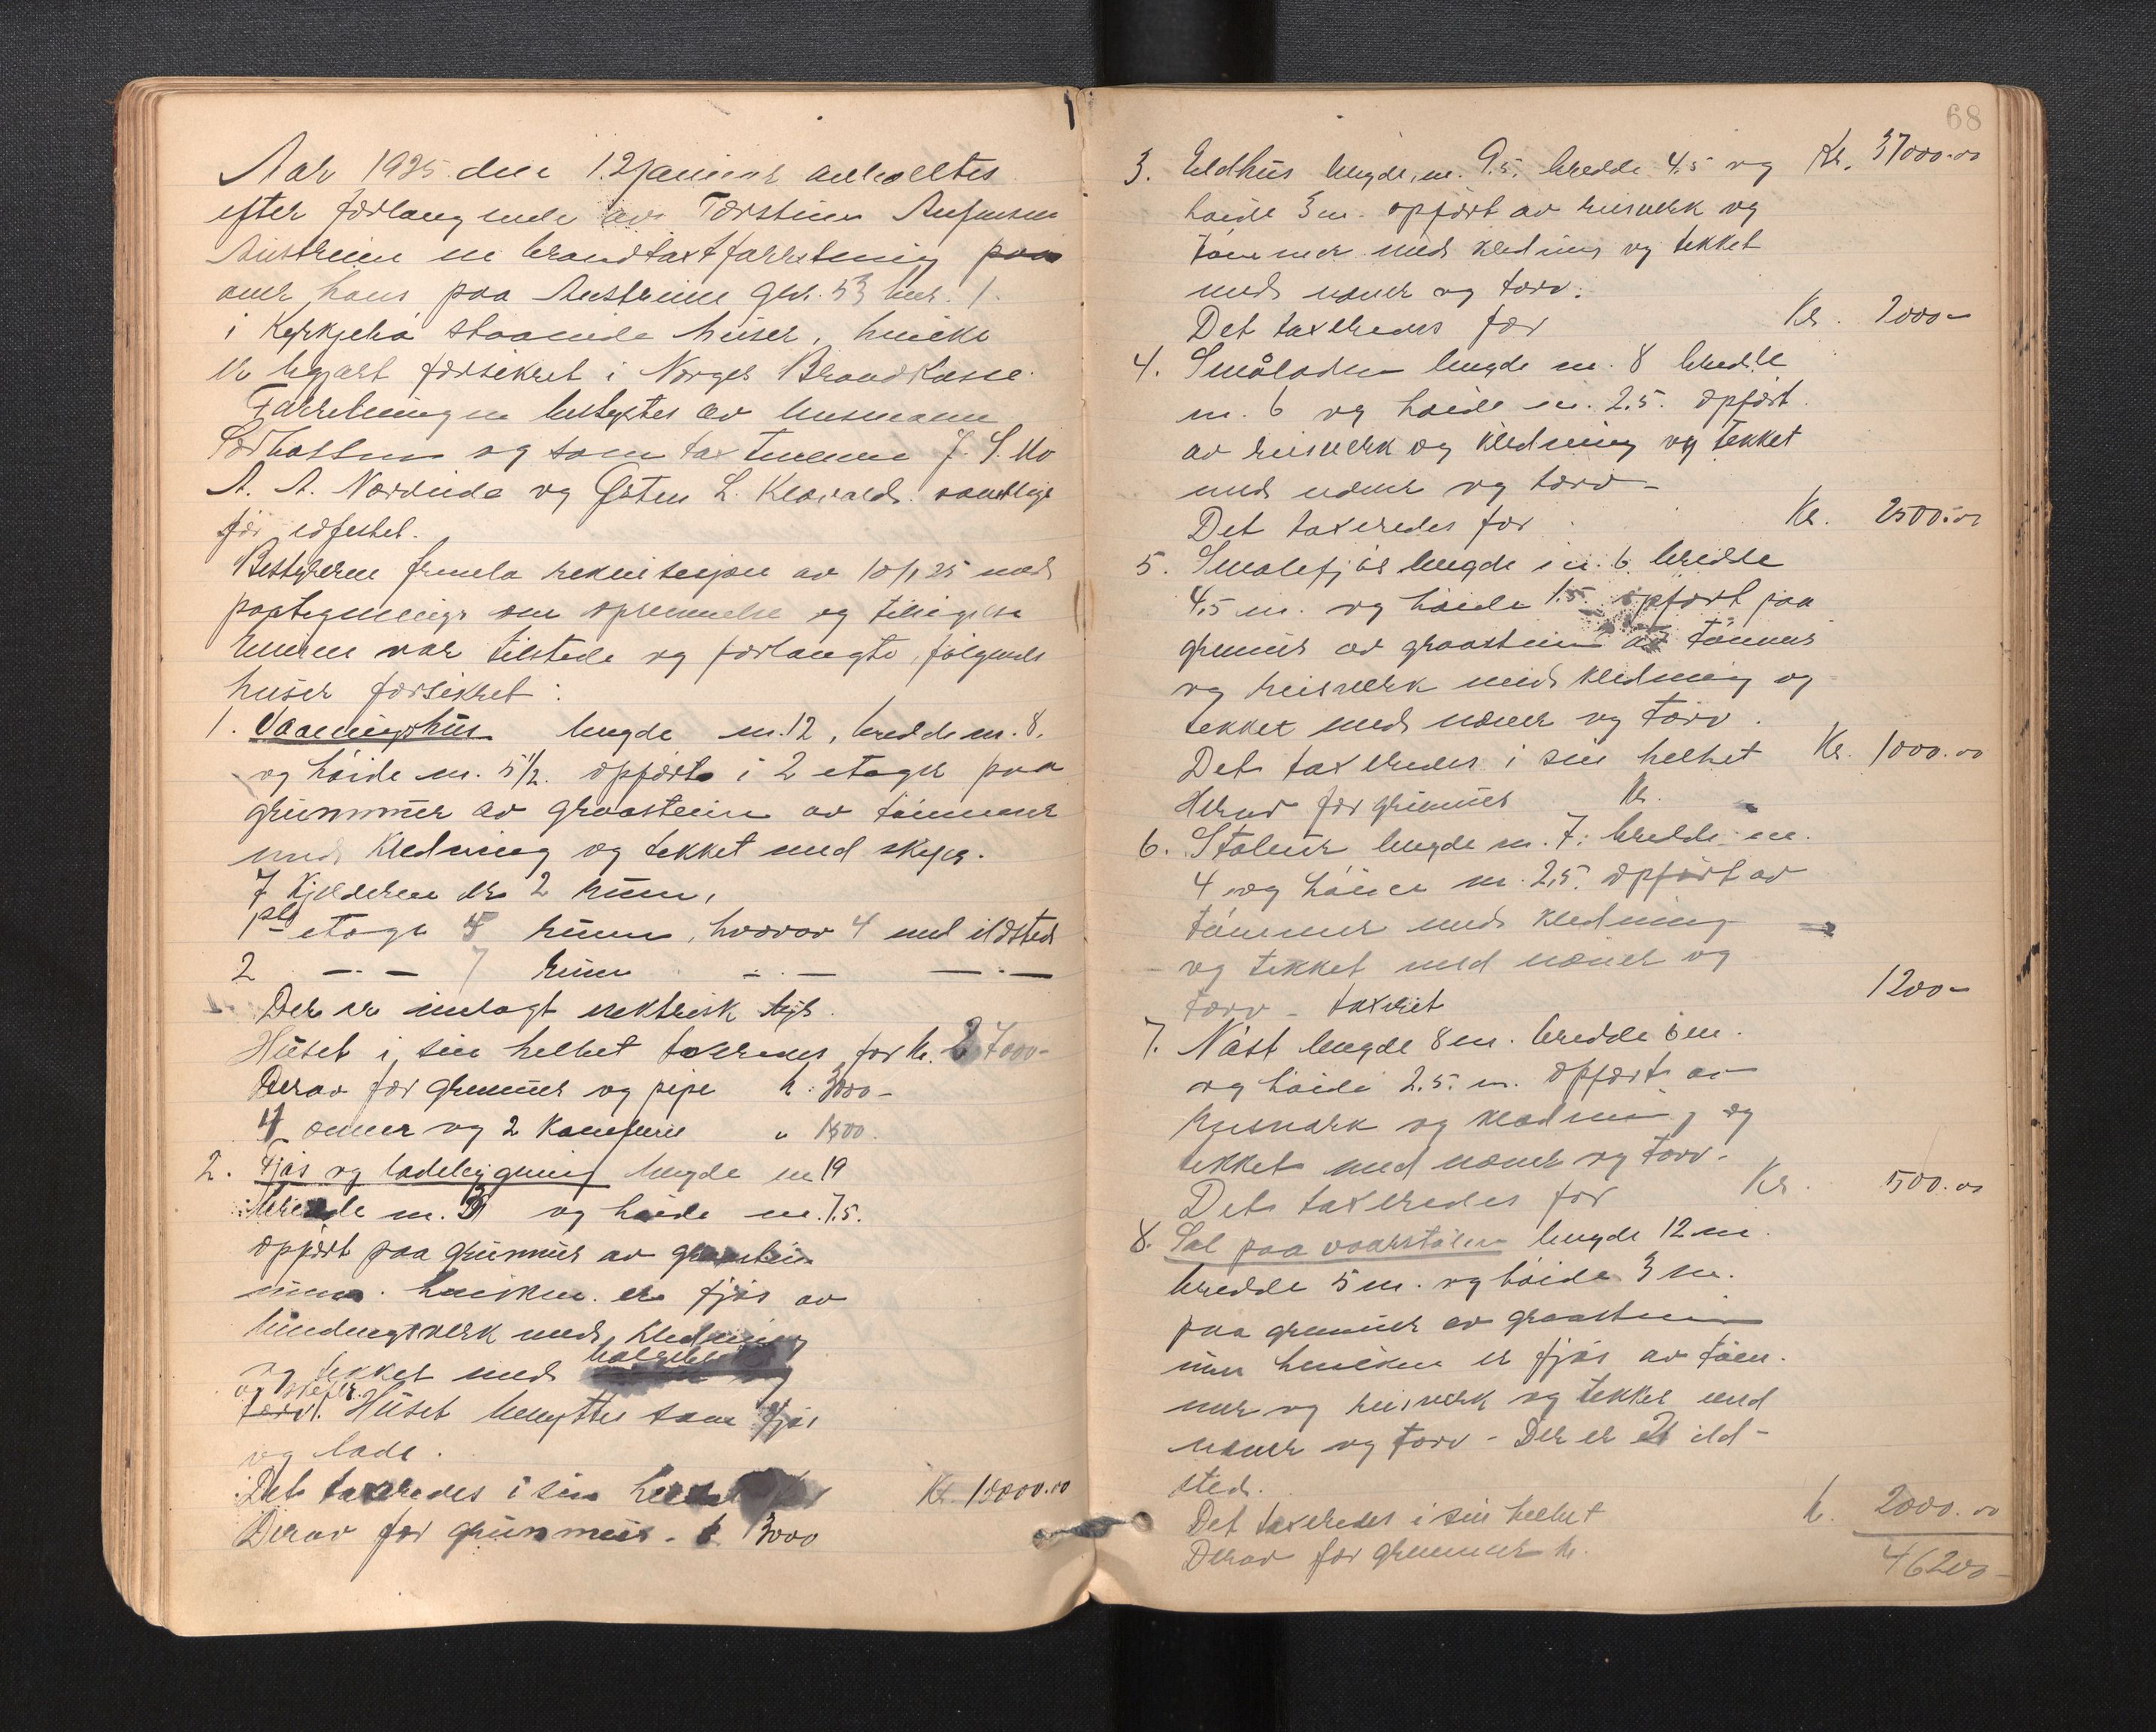 Aar 1925 den 12 januar avholdtes
efter forlangende av Torstein
Austreim en brandtaxtforretning paa
over hans paa Austreim gnr. 53 bnr. 1.
i Kyrkjebö staaende huser, hvilke
er begjært forsikret i Norges Brandkasse.
Forretningen bestyrtes av lensmann
og som taxtmenn J. S. Mo
A. A. Nordeide og Östen L. samtlige
før edfestet.
Bestyreren fremla rekvisisjon av 10/1 25 med
paategninger om opnevnelse og tilsigelse
Eieren var tilstede og forlangte følgende
huser forsikret:
1. Vaaningshus lengde m. 12, bredde m. 8,
og höide m. 5 1/2. opfört i 2 etager paa
grunmur av graastein av tömmer
med kledning og tekket med skifer.
I kjelderen er 2 rum,
1ste etage 5 rum, hvorav 4 med ildsted
2 — . — 7 rum — . — — . —
Der er innlagt elektrisk lys.
Huset i sin helhet taxeredes for kr. 27000-
Derav for grunmur og pipe kr. 3000-
4 ovner og 2 komfurer " 1500.
2. Fjös og ladebygning lengde m 19
bredde m. og höide m. 7.5.
opfört paa grunmur av graastein
innen hvilken er fjös av
bindingsverk med kledning
og tekket med
og skifer.
torv. Huset benyttes som fjös
og lade.
Det taxeredes i sin helhet Kr. 10000.00
Derav for grunmur. kr 3000
68
3. Eldhus lengde m. 9.5. bredde 4.5 og Kr. 37000.00
höide 3 m. opfört av reisverk og
tömmer med kledning og tekket
med never og torv.
Det taxeredes for Kr. 2000-
4. Smålöden lengde m. 8 bredde
m. 6 og höide m. 2.5. opfört
av reisverk og kledning og tekket
med never og torv-
Det taxeredes for Kr. 2500.00
5. Smalefjös lengde m. 6. bredde
4,5 m. og höide 1.5. opfört paa
grunmur av graastein av tömmer
og reisverk med kledning og
tekket med never og torv.
Det taxeredes i sin helhet Kr. 1000.00
Herav for grunmur kr.
6. Stabur lengde m. 7. bredde m.
4 og höide m. 2,5. opfört av
tömmer med kledning
og tekket med never og
torv - taxeret 1200-
7. Nöst lengde 8 m. bredde 6 m.
og höide 2.5. m. opfört av
reisverk og kledning og
tekket med never og torv.
Det taxeredes for Kr. 500.00
8. Sel paa vaarstölen lengde 12 m.
bredde 5 m. og höide 3 m.
paa grunmur av graastein
innen hvilken er fjös av töm-
mer og reisverk og tekket med
never og torv - Der er ild-
sted.
Det taxeredes i sin helhet kr. 2000.00
Derav for grunmur kr. 46200-